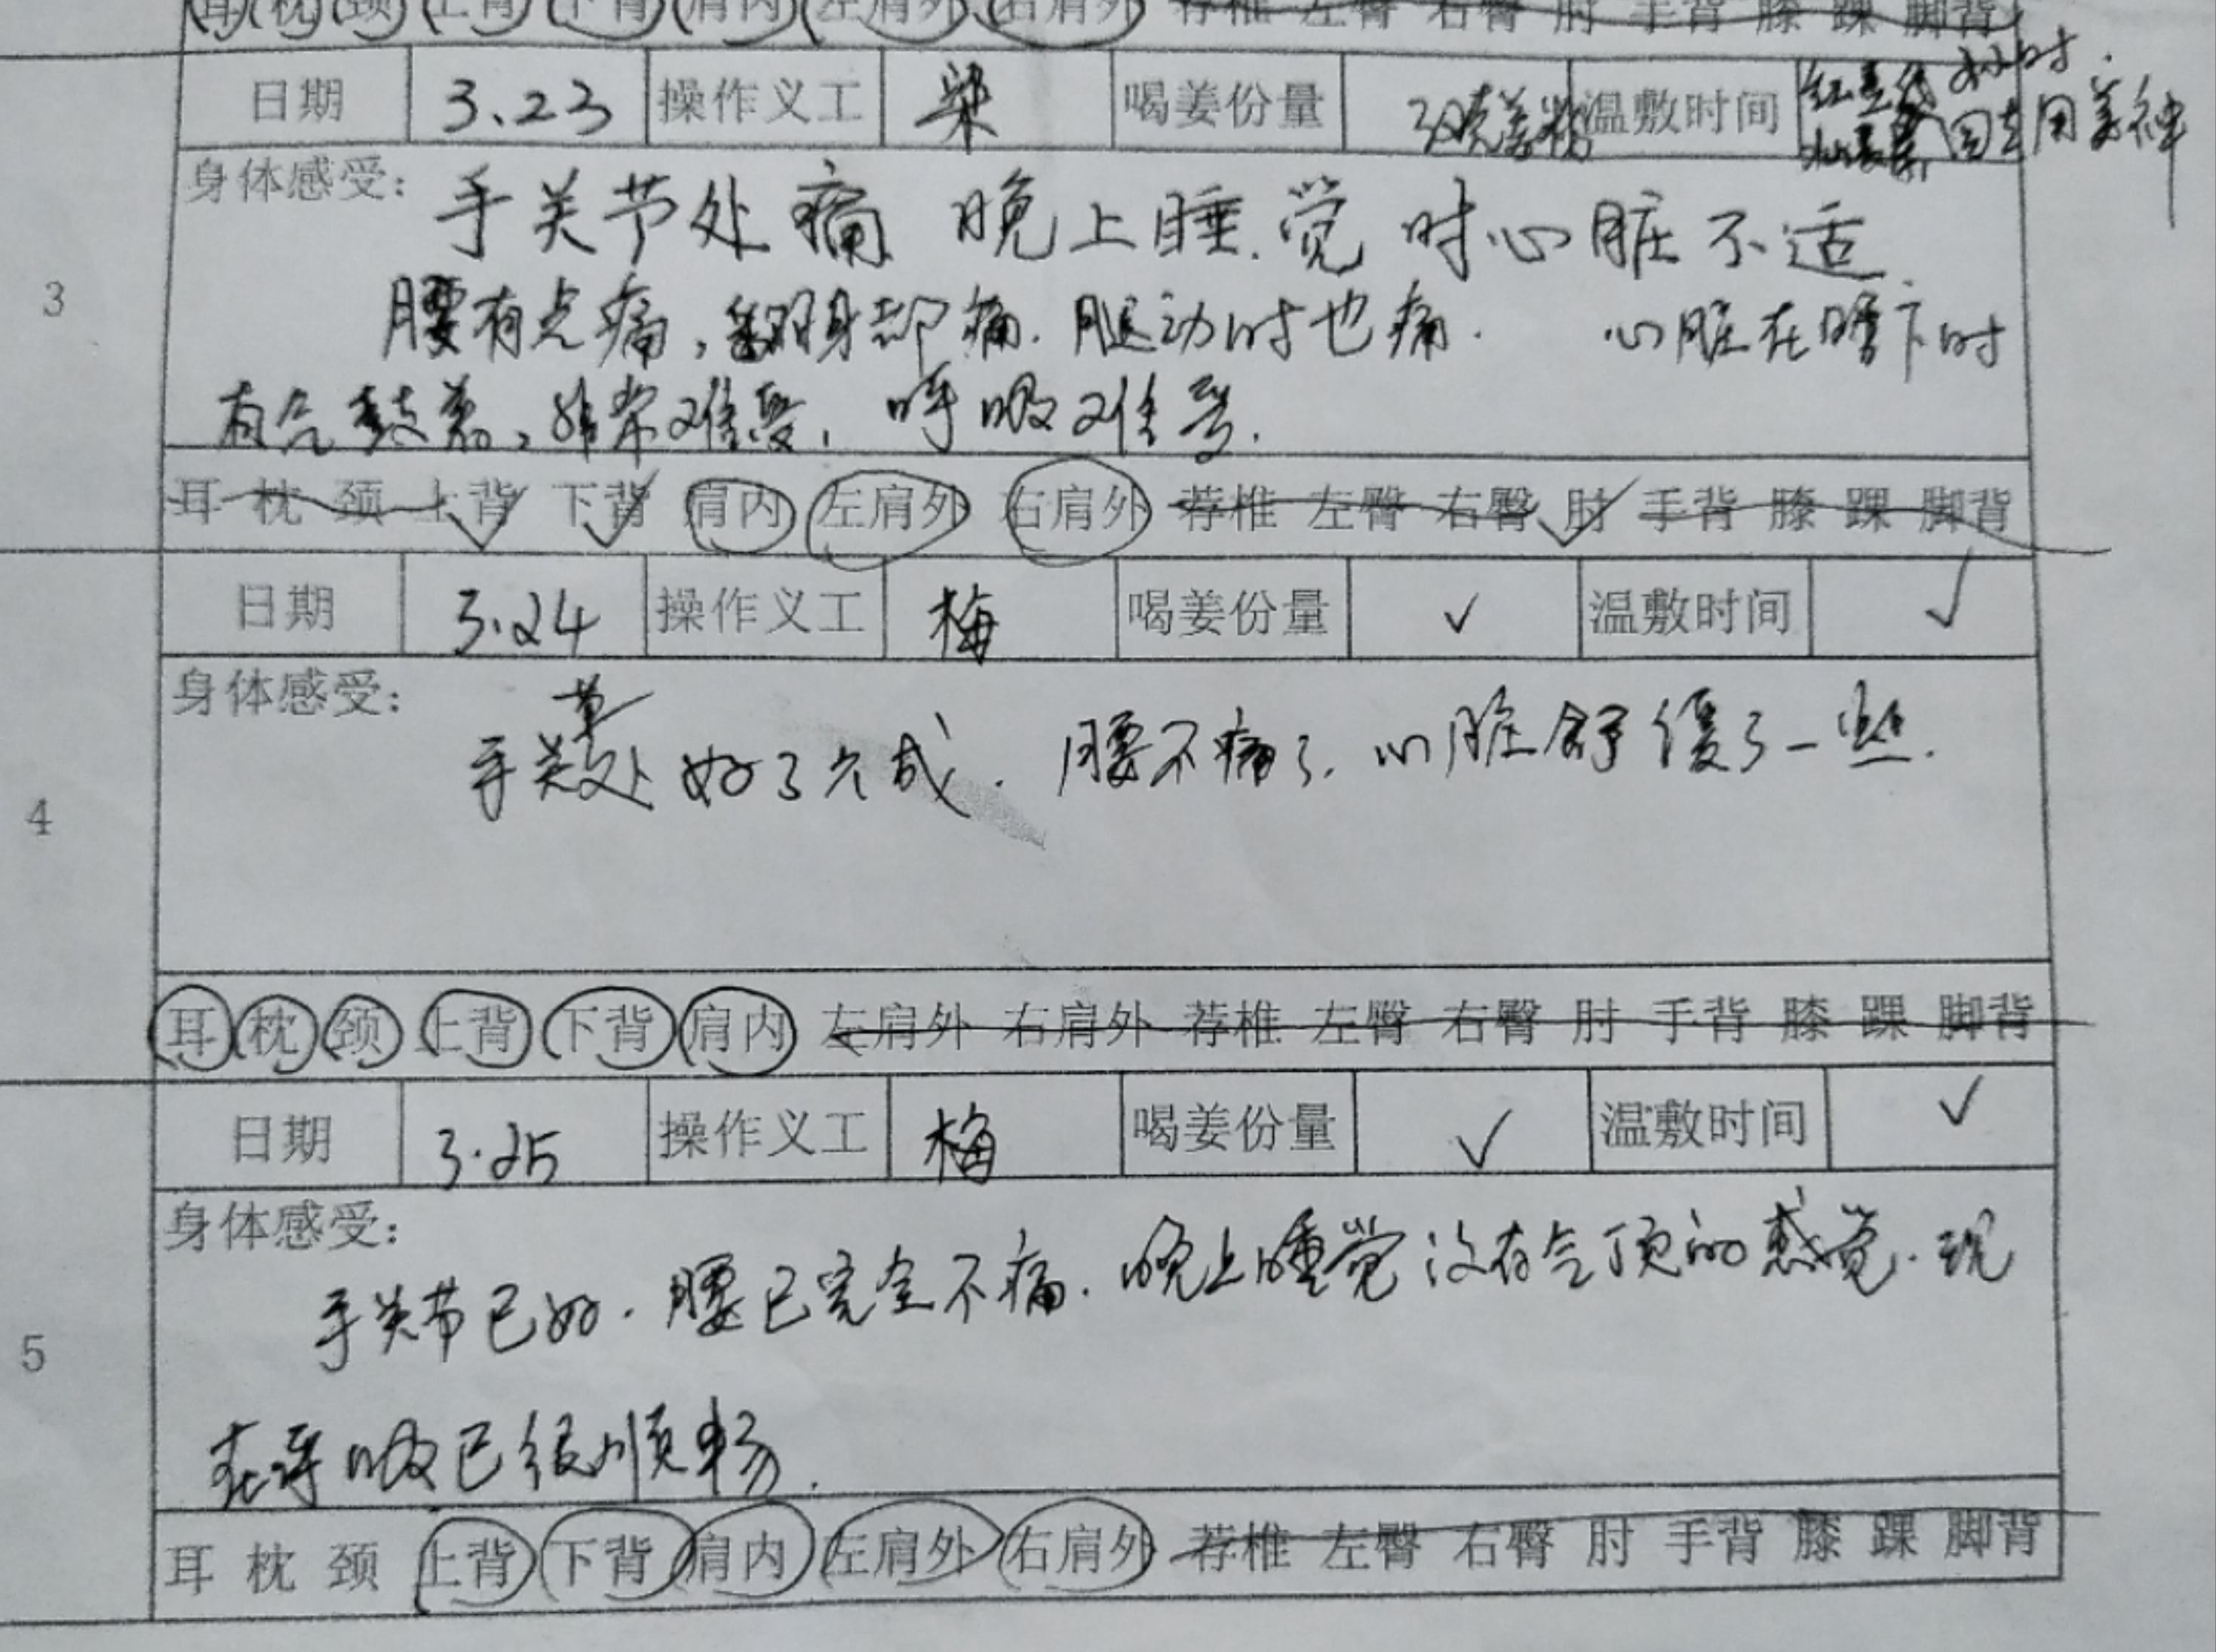 耳 枕 颈 上背 下背 肩内 左肩外 右肩外 荐椎 左臀 右臀 肘 手背 膝 踝 脚背
日期 3.23 操作义工 梁 喝姜份量 克姜粉 温敷时间 小时. 回去用姜
3
身体感受: 手关节处痛 晚上睡觉时心脏不适
腰有点痛,翻身却痛.腿动时也痛. 心脏在睡下时
有气鼓着,非常难受,呼吸难受.
耳 枕 颈 上背 下背 肩内 左肩外 右肩外 荐椎 左臀 右臀 肘 手背 膝 踝 脚背
日期 3.24 操作义工 梅 喝姜份量 ✓ 温敷时间 ✓
4
身体感受: 手关节处好了六成.腰不痛了.心脏舒缓了一些.
耳 枕 颈 上背 下背 肩内 左肩外 右肩外 荐椎 左臀 右臀 肘 手背 膝 踝 脚背
日期 3.25 操作义工 梅 喝姜份量 ✓ 温敷时间 ✓
5
身体感受:
手关节已好.腰已完全不痛.晚上睡觉没有气顶的感觉.现
在呼吸已很顺畅.
耳 枕 颈 上背 下背 肩内 左肩外 右肩外 荐椎 左臀 右臀 肘 手背 膝 踝 脚背